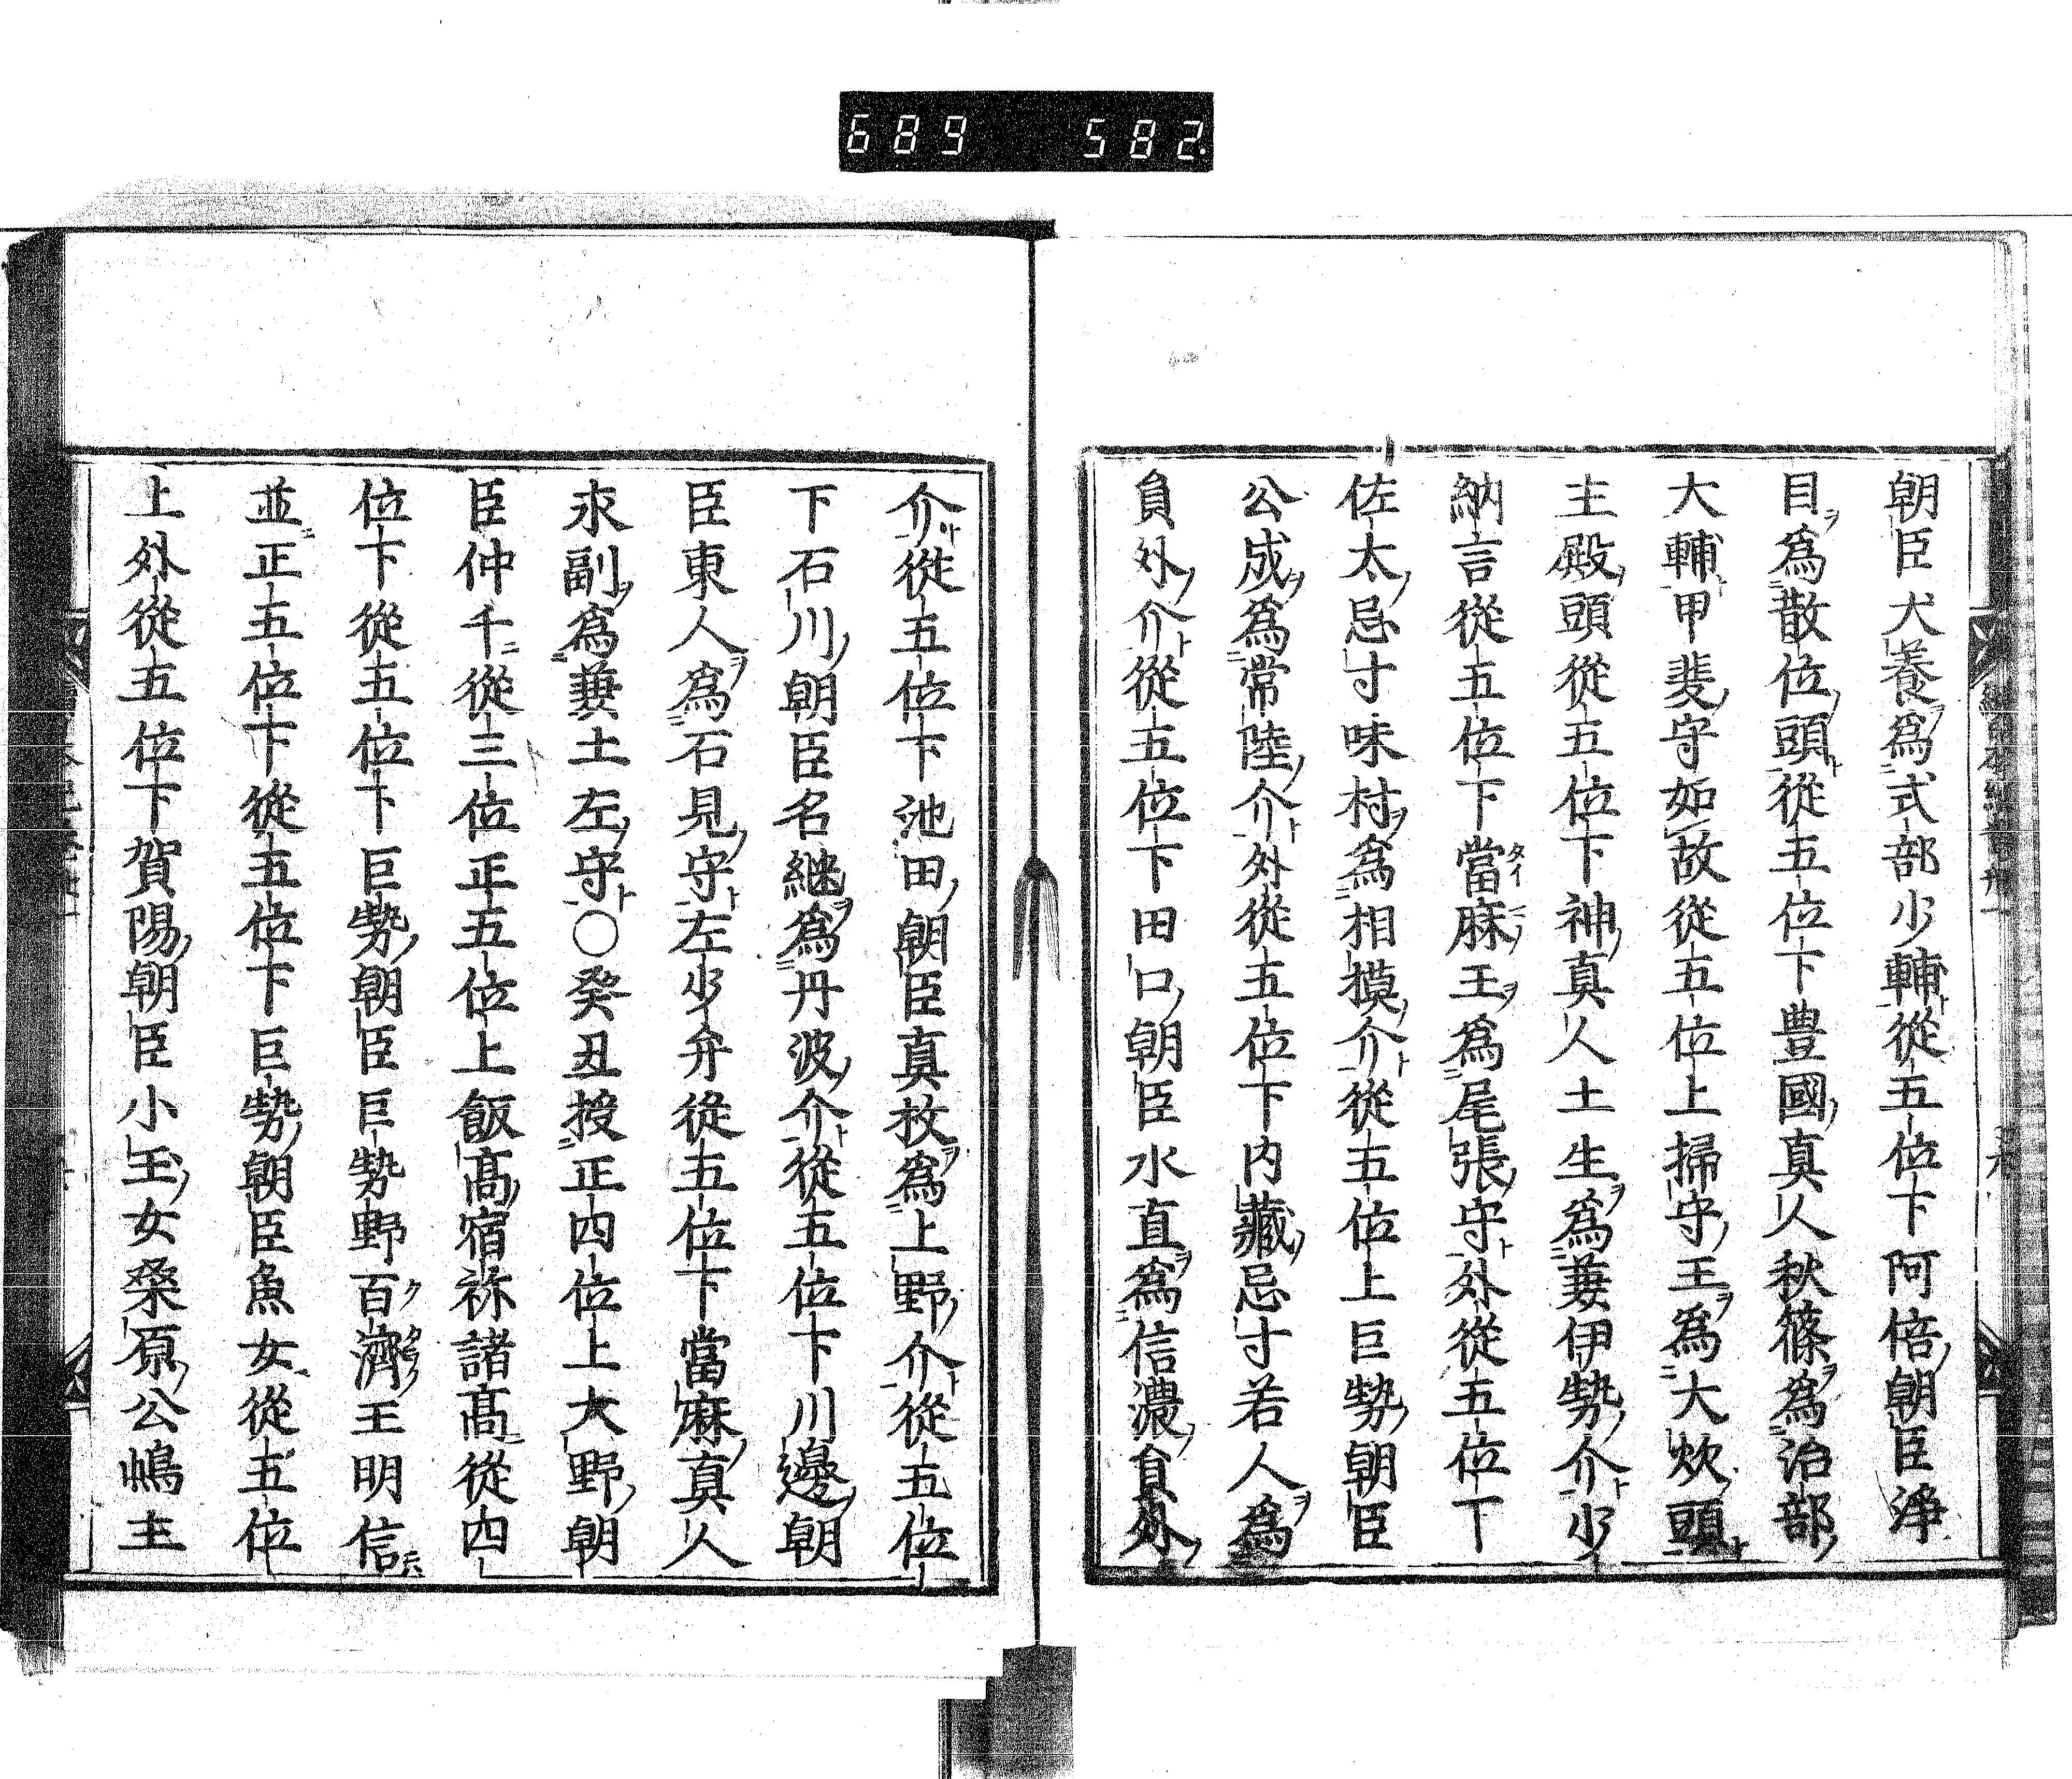 689 582
朝臣犬養爲式部少輔從五位下阿倍朝臣淨
目爲散位頭從五位下豊國真人秋篠爲治部
大輔甲斐守如故從五位上掃守王爲大炊頭
主殿頭從五位下神真人土生爲兼伊勢介少
納言從五位下當麻王爲尾張守外從五位下
佐太忌寸味村爲相摸介從五位上巨勢朝臣
公成爲常陸介外從五位下内藏忌寸若人爲
員外介從五位下田口朝臣水直爲信濃員外
介從五位下池田朝臣真枚爲上野介從五位
下石川朝臣名継爲丹波介從五位下川邊朝
臣東人爲石見守左少弁從五位下當麻真人
永副爲兼土左守○癸丑授正四位上大野朝
臣仲千從三位正五位上飯髙宿祢諸髙從四
位下從五位下巨勢朝臣巨勢野百濟王明信
並正五位下從五位下巨勢朝臣魚女從五位
上外從五位下賀陽朝臣小玉女桒原公嶋主